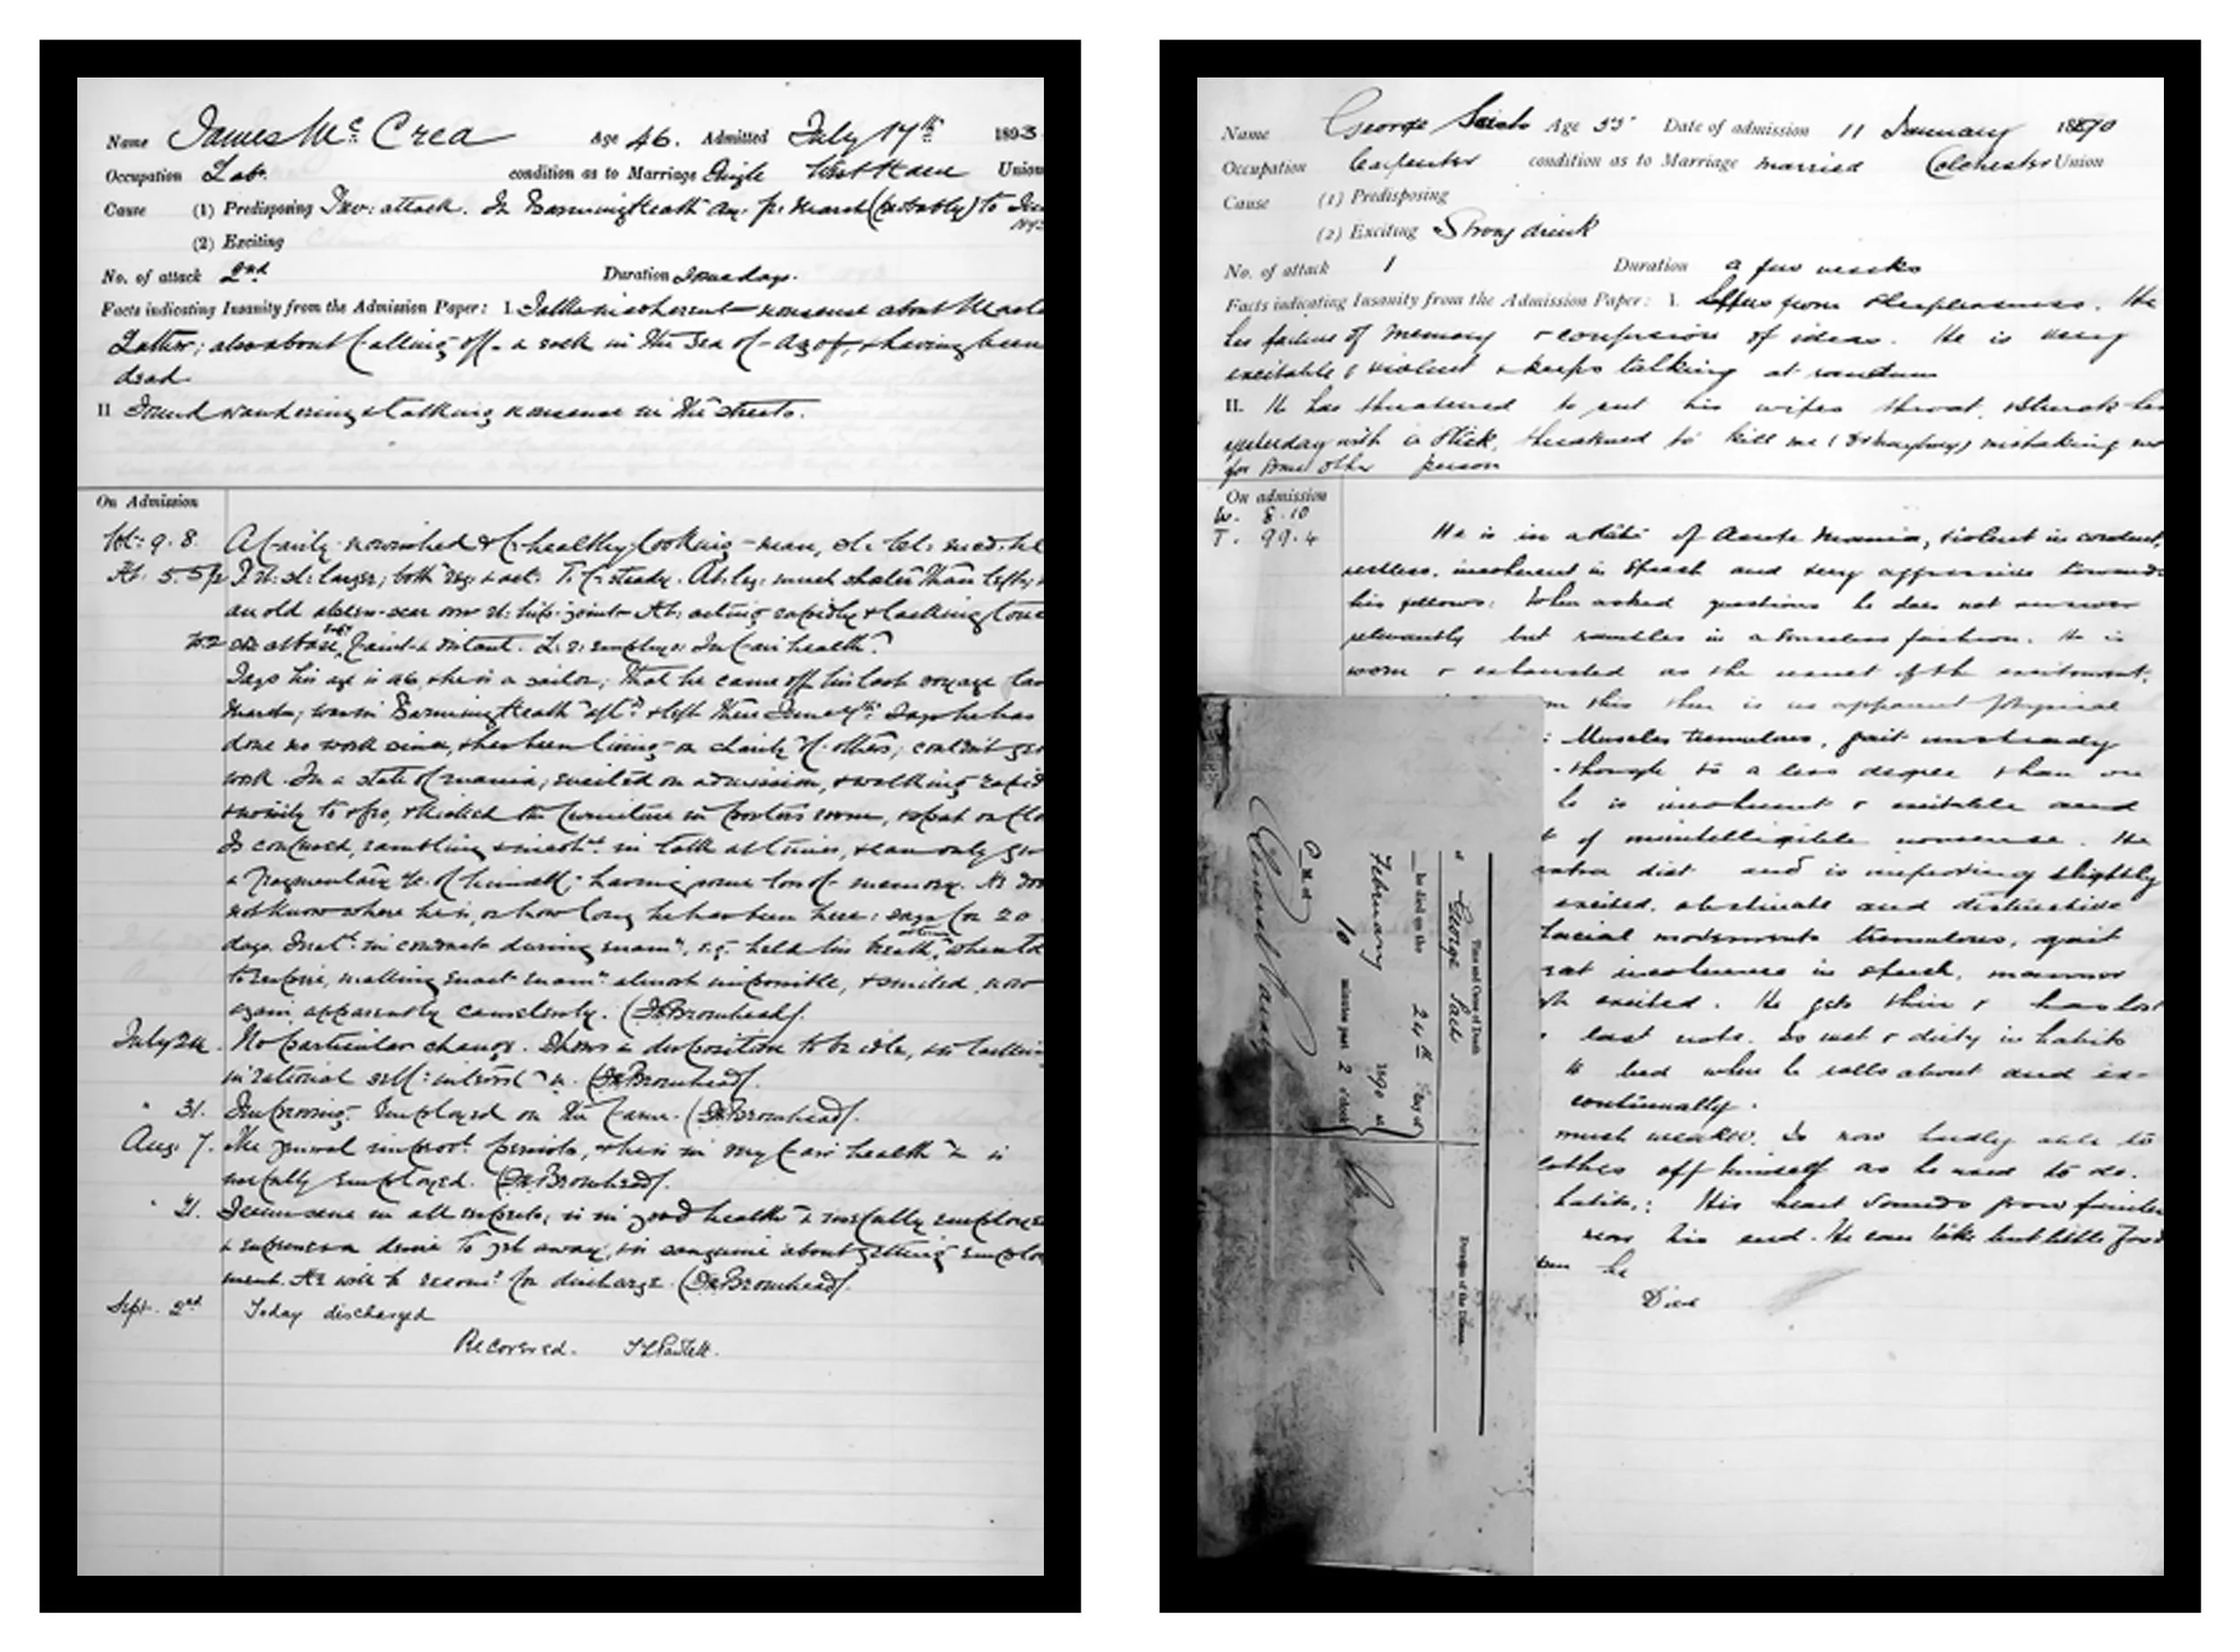 Name James Mc Crea Age 46. Admitted July 17th 1893
Occupation Lab. condition as to Marriage Single West Ham Union
Cause (1) Predisposing Prev: attack. In Barming Heath As. fr. March (probably) to
(2) Exciting
No. of attack 2nd Duration Some days.
Facts indicating Insanity from the Admission Paper: I. Talks incoherent nonsense about
Luther; also about falling off a rock in the Sea of Azof, & having been
dead
II Found wandering & talking nonsense in the streets.
On Admission
Wt: 9. 8. A fairly nourished & f. healthy looking man,
Ht: 5. 5½ larger; both reg: & act: T. f. steady. much shorter than left,
an old scar over rt: hip-joint Ht: acting rapidly & lacking tone
faint & distant. In fair health.
Says his age is 46, & he is a sailor; that he came off his last voyage
March; was in Barming Heath aft. & left there June Says he has
done no work since, & has been living on charity of others; couldn't get
work. In a state of mania; excited on admission, & walking
& noisily to & fro, & kicked the furniture in porters room, & spat on
Is confused, rambling & incoht. in talk at times, & can only give
a fragmentary of himself; having some loss of memory. He does
not know where he is, or how long he has been here: says for 20
days. in conduct during exam., e.g. held his breath, when told
to respire, making exact exam. almost impossible, & smiled now
again, apparently causelessly. (Dr Bromhead).
July 24. No particular change. Shows a disposition to be idle, & is
irrational (Dr Bromhead).
" 31. Improving. Employed on the farm. (Dr Bromhead).
Aug. 7. The general improvt. persists, & he is in very fair health & is
usefully employed. (Dr Bromhead).
" 21. Seems sane in all respects, is in good health & usefully employed
& expresses a desire to get away, & is sanguine about getting employ
ment. He will be recomd. for discharge. (Dr Bromhead).
Sept. 2nd Today discharged
Recovered.
Name George Age 55 Date of admission 11 January 1890
Occupation Carpenter condition as to Marriage married Colchester Union
Cause (1) Predisposing
(2) Exciting Strong drink
No. of attack 1 Duration a few weeks
Facts indicating Insanity from the Admission Paper: I. Suffers from sleeplessness. He
has failure of memory & confusion of ideas. He is very
excitable & violent & keeps talking at random
II. He has threatened to cut his wifes throat, & struck her
yesterday with a stick, threatened to kill me mistaking me
for some other person
On admission
W. 8.10
T. 99.4
He is in a state of Acute Mania, violent in conduct,
restless, incoherent in speech and very aggressive towards
his fellows: When asked questions he does not answer
relevantly but rambles in a senseless fashion. He is
worn & exhausted as the result of the excitement.
this there is no apparent physical
: Muscles tremulous, gait unsteady
though to a less degree than on
he is incoherent & excitable and
of unintelligible nonsense. He
extra diet and is improving slightly
excited, obstinate and destructive
facial movements tremulous, gait
incoherence in speech, manner
excited. He gets thin & has lost
last note. Is wet & dirty in habits
bed when he rolls about and
continually.
much weaker. Is now hardly able to
clothes off himself as he used to do.
habits,: His heart sounds grow fainter
near his end. He can take but little food
he
Died
Time and Cause of Death
of George
he died on the 24th day of
February 1890 at
10 minutes past 2 o'clock
M. of
Duration of the Disease.